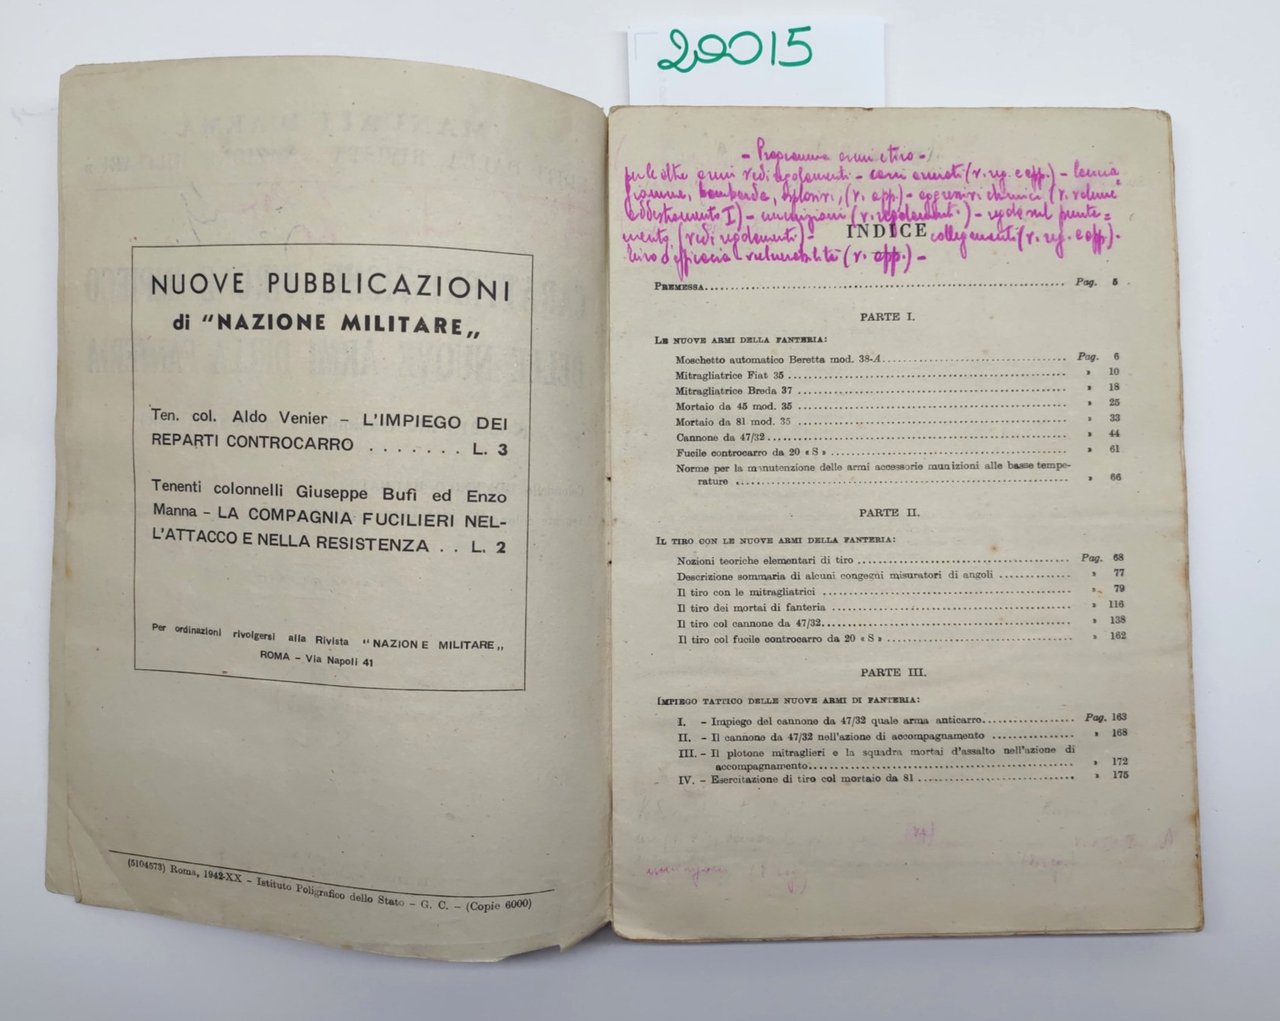 20015
NUOVE PUBBLICAZIONI
di "NAZIONE MILITARE„
Ten. col. Aldo Venier – L'IMPIEGO DEI
REPARTI CONTROCARRO . . . . . . . L. 3
Tenenti colonnelli Giuseppe Bufi ed Enzo
Manna – LA COMPAGNIA FUCILIERI NEL-
L'ATTACCO E NELLA RESISTENZA . . L. 2
Per ordinazioni rivolgersi alla Rivista "NAZIONE MILITARE„
ROMA – Via Napoli 41
(5104573) Roma, 1942-XX – Istituto Poligrafico dello Stato – G. C. – (Copie 6000)
– Programma armi e tiro –
per le altre armi vedi regolamenti – carri armati (v. reg. e app.) – lancia
fiamme, bombarda, esplosivi, (v. app) – aggressivi chimici (v. volume
addestramento I) – munizioni (v. regolamenti) – sul punta=
mento (vedi regolamenti) – collegamenti (v. reg. e app).
tiro d'efficacia e vulnerabilità (v. app.) –
INDICE
PREMESSA . . . . . Pag. 5
PARTE I.
LE NUOVE ARMI DELLA FANTERIA:
Moschetto automatico Beretta mod. 38-A . . . . . Pag. 6
Mitragliatrice Fiat 35 . . . . . » 10
Mitragliatrice Breda 37 . . . . . » 18
Mortaio da 45 mod. 35 . . . . . » 25
Mortaio da 81 mod. 35 . . . . . » 33
Cannone da 47/32 . . . . . » 44
Fucile controcarro da 20 « S » . . . . . » 61
Norme per la manutenzione delle armi accessorie munizioni alle basse tempe-
rature . . . . . » 66
PARTE II.
IL TIRO CON LE NUOVE ARMI DELLA FANTERIA:
Nozioni teoriche elementari di tiro . . . . . Pag. 68
Descrizione sommaria di alcuni congegni misuratori di angoli . . . . . » 77
Il tiro con le mitragliatrici . . . . . » 79
Il tiro dei mortai di fanteria . . . . . » 116
Il tiro col cannone da 47/32 . . . . . » 138
Il tiro col fucile controcarro da 20 « S » . . . . . » 162
PARTE III.
IMPIEGO TATTICO DELLE NUOVE ARMI DI FANTERIA:
I. – Impiego del cannone da 47/32 quale arma anticarro . . . . . Pag. 163
II. – Il cannone da 47/32 nell'azione di accompagnamento . . . . . » 168
III. – Il plotone mitraglieri e la squadra mortai d'assalto nell'azione di
accompagnamento . . . . . » 172
IV. – Esercitazione di tiro col mortaio da 81 . . . . . » 175